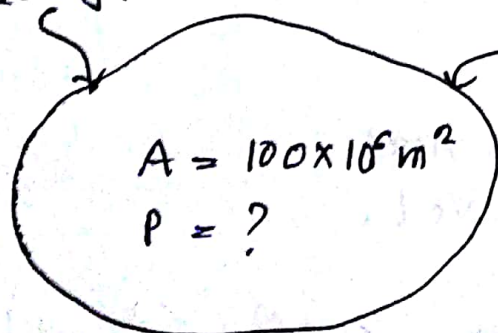 A = 100 × 10⁶ m²
P = ?